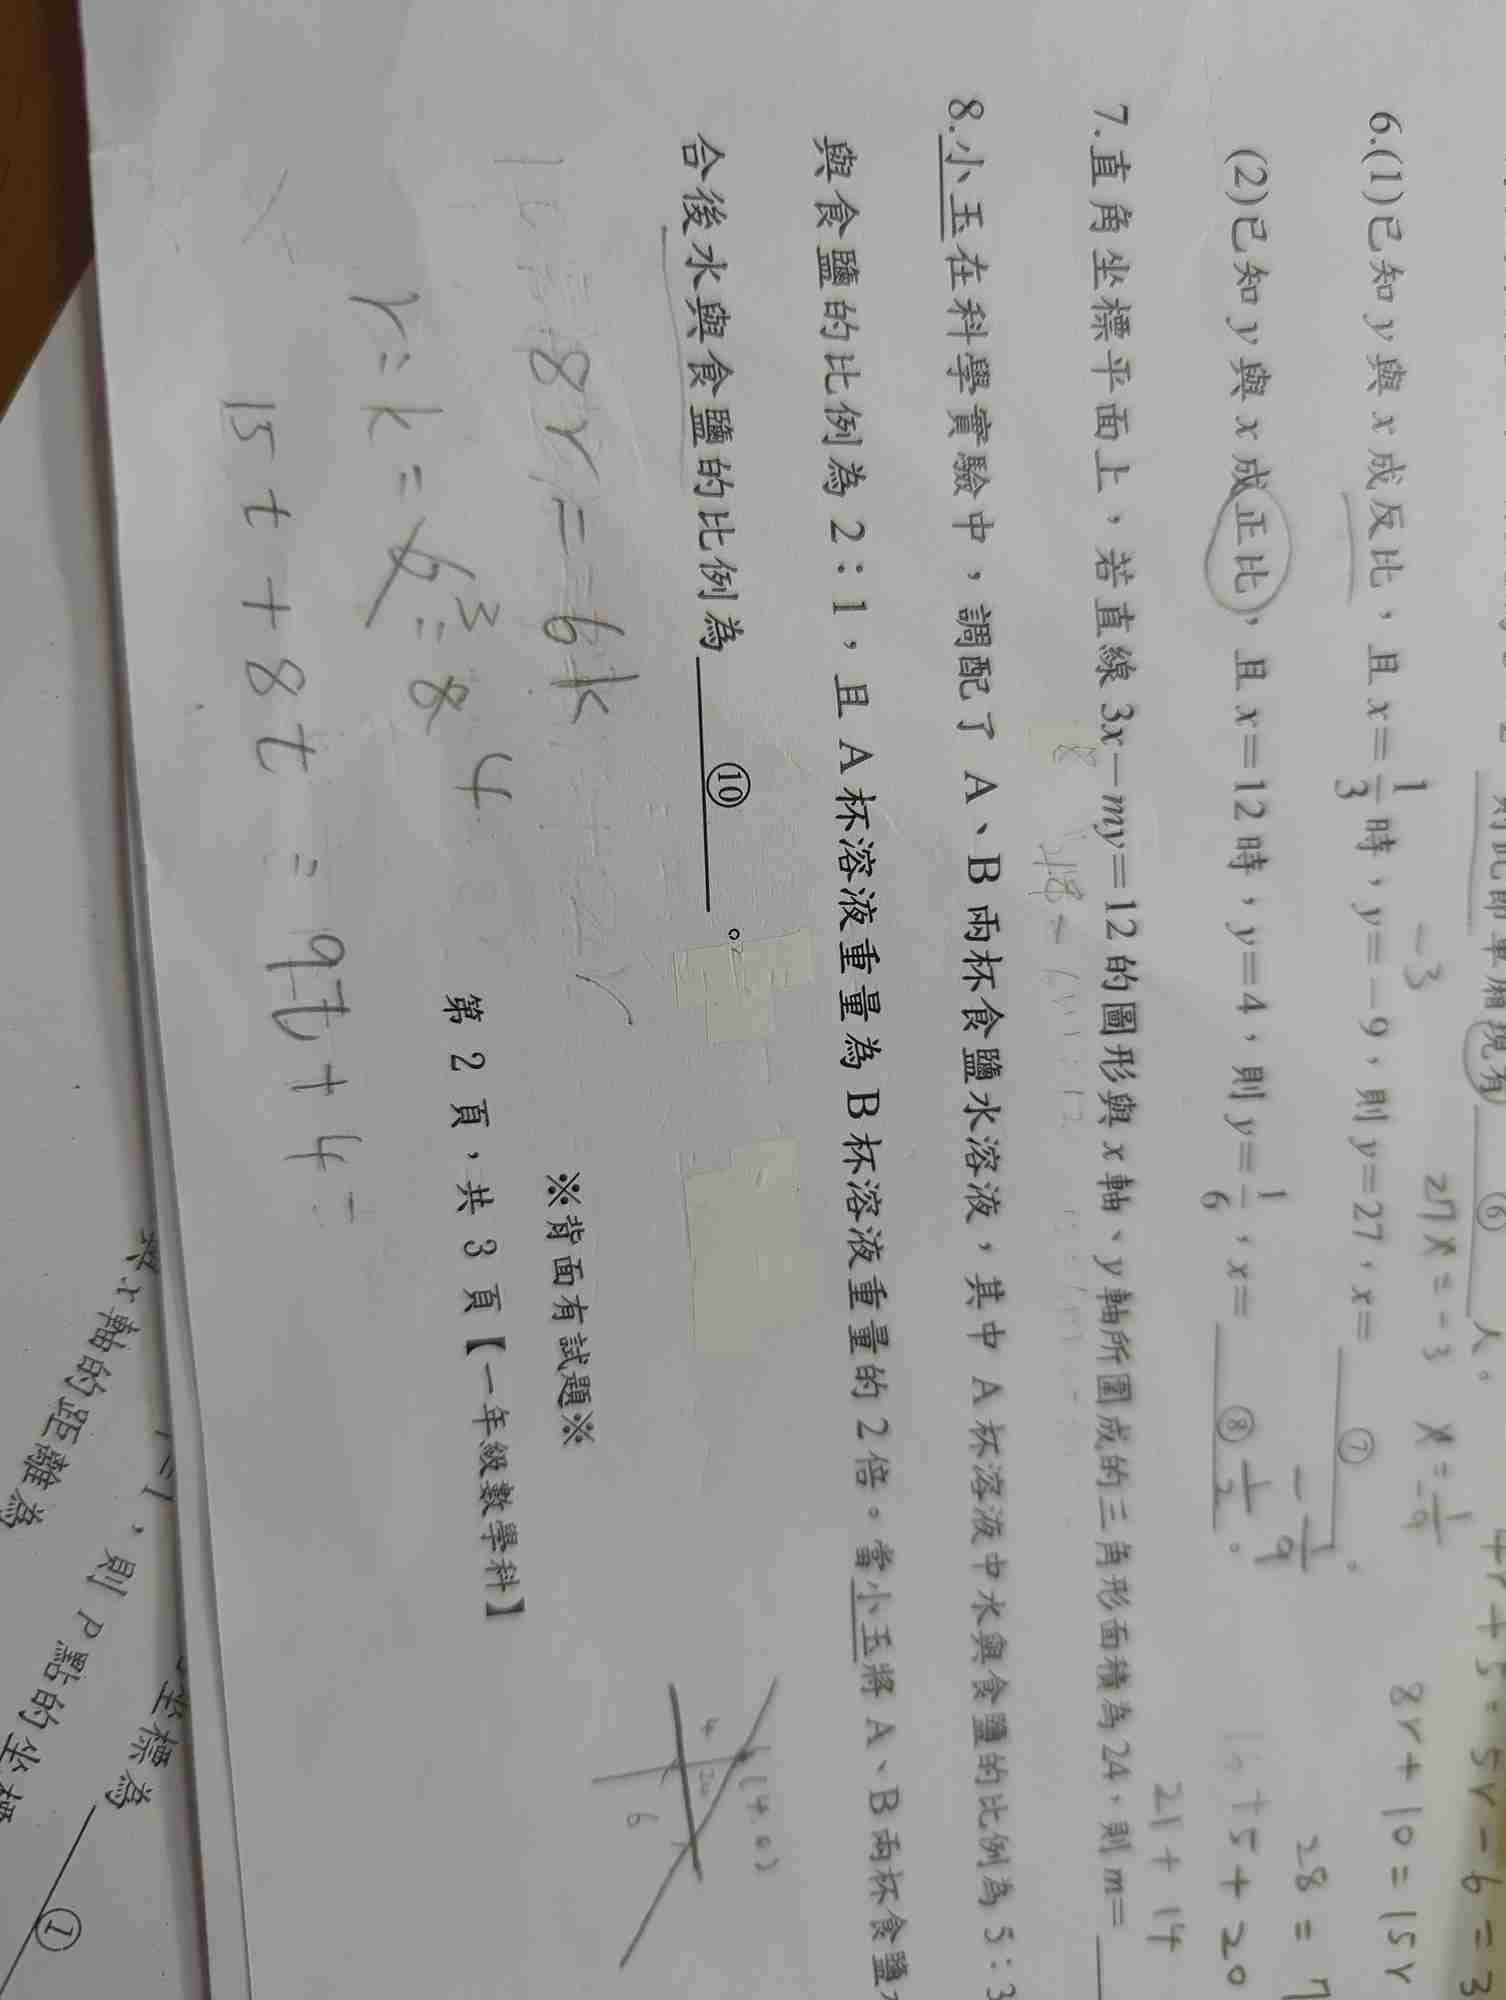 ⑥ 人。
6.(1)已知 y 與 x 成反比，且 x=1/3 時，y=-9，則 y=27，x= ⑦ -1/9 。
-3
27x=-3 x=-1/9
(2)已知 y 與 x 成正比，且 x=12 時，y=4，則 y=1/6，x= ⑧ 1/2 。
8r+10=15r
28=7
+5+20
21+14
7.直角坐標平面上，若直線 3x-my=12 的圖形與 x 軸、y 軸所圍成的三角形面積為 24，則 m=
8.小玉在科學實驗中，調配了 A、B 兩杯食鹽水溶液，其中 A 杯溶液中水與食鹽的比例為 5：3
與食鹽的比例為 2：1，且 A 杯溶液重量為 B 杯溶液重量的 2 倍。當小玉將 A、B 兩杯食鹽
合後水與食鹽的比例為 ⑩ 。
8r=6k
r:k=6:8
3
4
15t+8t=9t+4
4
24
6
※背面有試題※
第 2 頁，共 3 頁【一年級數學科】
坐標為 ①
則 P 點的坐標
x 軸的距離為